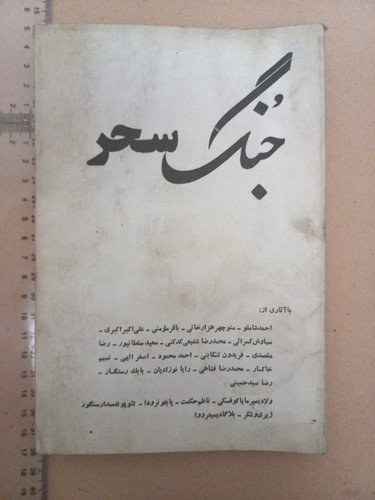 جُنگ سحر
با آثاری از:
احمد شاملو - منوچهر هزارخانی - باقر مؤمنی - علی اکبر اکبری -
سیاوش کسرائی - محمدرضا شفیعی کدکنی - سعید سلطانپور - رضا
مقصدی - فریدون تنکابنی - احمد محمود - اصغر الهی - نسیم
خاکسار - محمدرضا فشاهی - رایا نوزادیان - بابک رستگار -
رضا سیدحسینی
ولادیمیر مایاکوفسکی - ناظم حکمت - پابلو نرودا - لئوپولد سدار سنگور
ژیری ولکر - بلاگا دیمیتروا